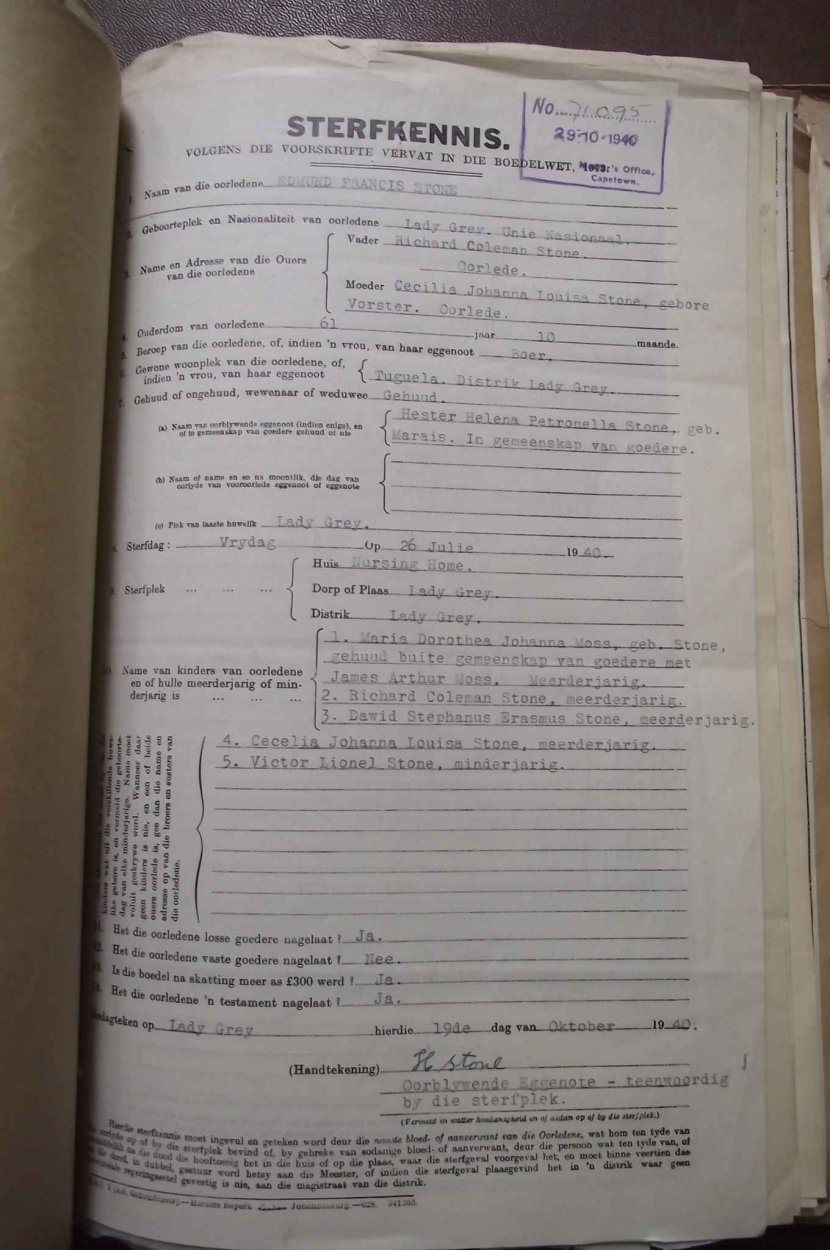 No. 71095
29-10-1940
Master's Office,
Capetown.
STERFKENNIS.
VOLGENS DIE VOORSKRIFTE VERVAT IN DIE BOEDELWET, 1913.
1. Naam van die oorledene EDMUND FRANCIS STONE
2. Geboorteplek en Nasionaliteit van oorledene Lady Grey. Unie Nasionaal.
3. Name en Adresse van die Ouers van die oorledene
Vader Richard Coleman Stone.
Oorlede.
Moeder Cecilia Johanna Louisa Stone, gebore
Vorster. Oorlede.
4. Ouderdom van oorledene 61 jaar 10 maande.
5. Beroep van die oorledene, of, indien 'n vrou, van haar eggenoot Boer.
6. Gewone woonplek van die oorledene, of,
indien 'n vrou, van haar eggenoot Tuguela. Distrik Lady Grey.
7. Gehuud of ongehuud, wewenaar of weduwee Gehuud.
(a) Naam van oorblywende eggenoot (indien enige), en
of in gemeenskap van goedere gehuud of nie
Hester Helena Petronella Stone, geb.
Marais. In gemeenskap van goedere.
(b) Naam of name en so na moontlik, die dag van
oorlyde van vooroorlede eggenoot of eggenote
(c) Plek van laaste huwelik Lady Grey.
8. Sterfdag: Vrydag Op 26 Julie 1940.
9. Sterfplek ... ... ...
Huis Nursing Home.
Dorp of Plaas Lady Grey.
Distrik Lady Grey.
10. Name van kinders van oorledene
en of hulle meerderjarig of min-
derjarig is ... ... ...
1. Maria Dorothea Johanna Moss, geb. Stone,
gehuud buite gemeenskap van goedere met
James Arthur Moss. Meerderjarig.
2. Richard Coleman Stone, meerderjarig.
3. Dawid Stephanus Erasmus Stone, meerderjarig.
4. Cecelia Johanna Louisa Stone, meerderjarig.
5. Victor Lionel Stone, minderjarig.
kinders wat uit die verskillende huwe-
like gebore is, en vermeld die geboorte-
dag van elke minderjarige. Name moet
voluit geskrywe word. Wanneer daar
geen kinders is nie, en een of beide
ouers oorlede is, gee dan die name en
adresse op van die broers en susters van
die oorledene.
11. Het die oorledene losse goedere nagelaat? Ja.
12. Het die oorledene vaste goedere nagelaat? Nee.
13. Is die boedel na skatting meer as £300 werd? Ja.
14. Het die oorledene 'n testament nagelaat? Ja.
Gedagteken op Lady Grey hierdie 19de dag van Oktober 1940.
(Handtekening) H Stone
Oorblywende Eggenote - teenwoordig
by die sterfplek.
(Vermeld in watter hoedanigheid en of aldan op of by die sterfplek.)
Hierdie sterfkennis moet ingevul en geteken word deur die naaste bloed- of aanverwant van die Oorledene, wat hom ten tyde van
die oorlyde op of by die sterfplek bevind of, by gebreke van sodanige bloed- of aanverwant, deur die persoon wat ten tyde van, of
onmiddellik na die dood die hooftoesig het in die huis of op die plaas, waar die sterfgeval voorgeval het, en moet binne veertien dae
na die dood, in dubbel, gestuur word hetsy aan die Meester, of indien die sterfgeval plaasgevind het in 'n distrik waar geen
provinsiale regeringsetel gevestig is nie, aan die magistraat van die distrik.
Beperk Johannesburg.—628. 341363.